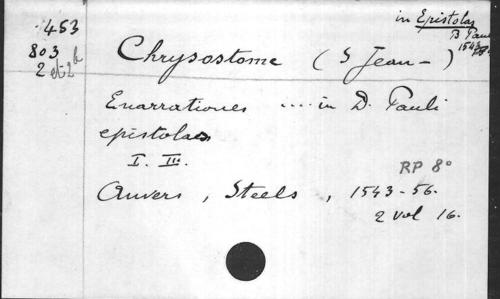 453
803
2 et 2b
in Epistolas
B Pauli
1543
Chrysostome ( S Jean - )
Enarrationes .... in D. Pauli
epistolas
I. III.
RP 8°
Anvers , Steels , 1543-56.
2 vol 16.